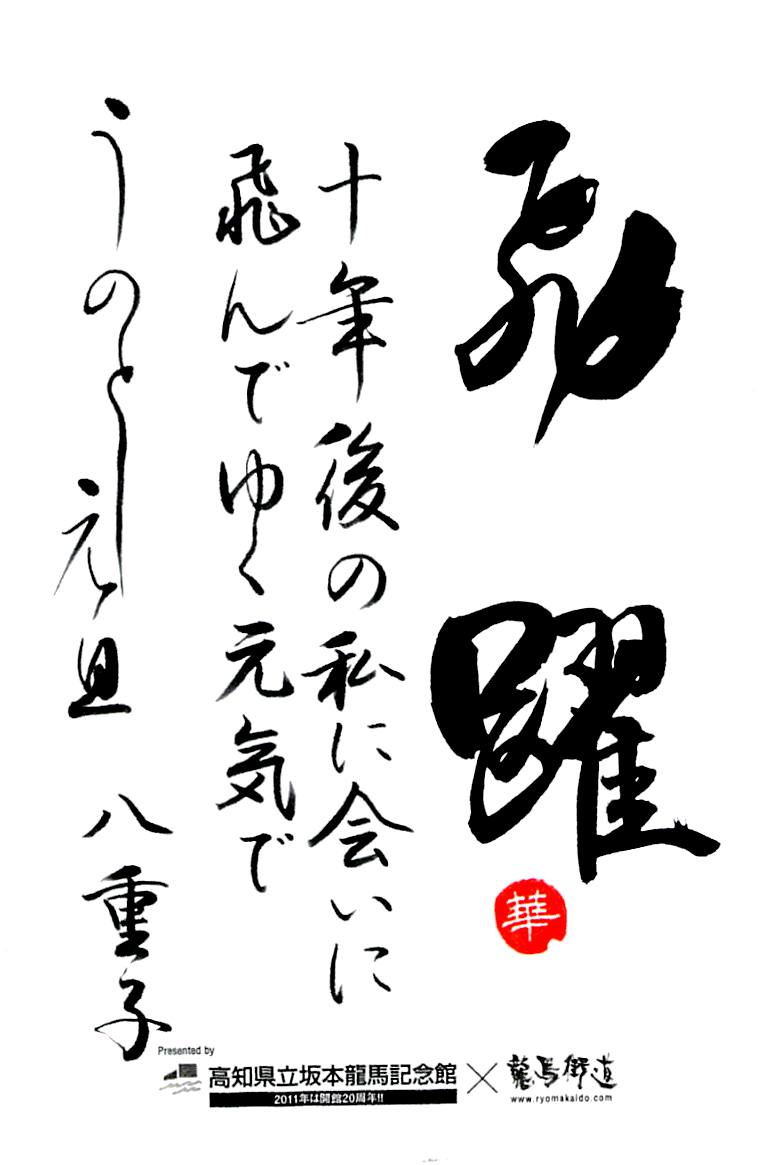 飛躍
華
十年後の私に会いに
飛んでゆく元気で
うのとし元旦 八重子
Presented by
高知県立坂本龍馬記念館×龍馬街道
2011年は開館20周年!!
www.ryomakaido.com